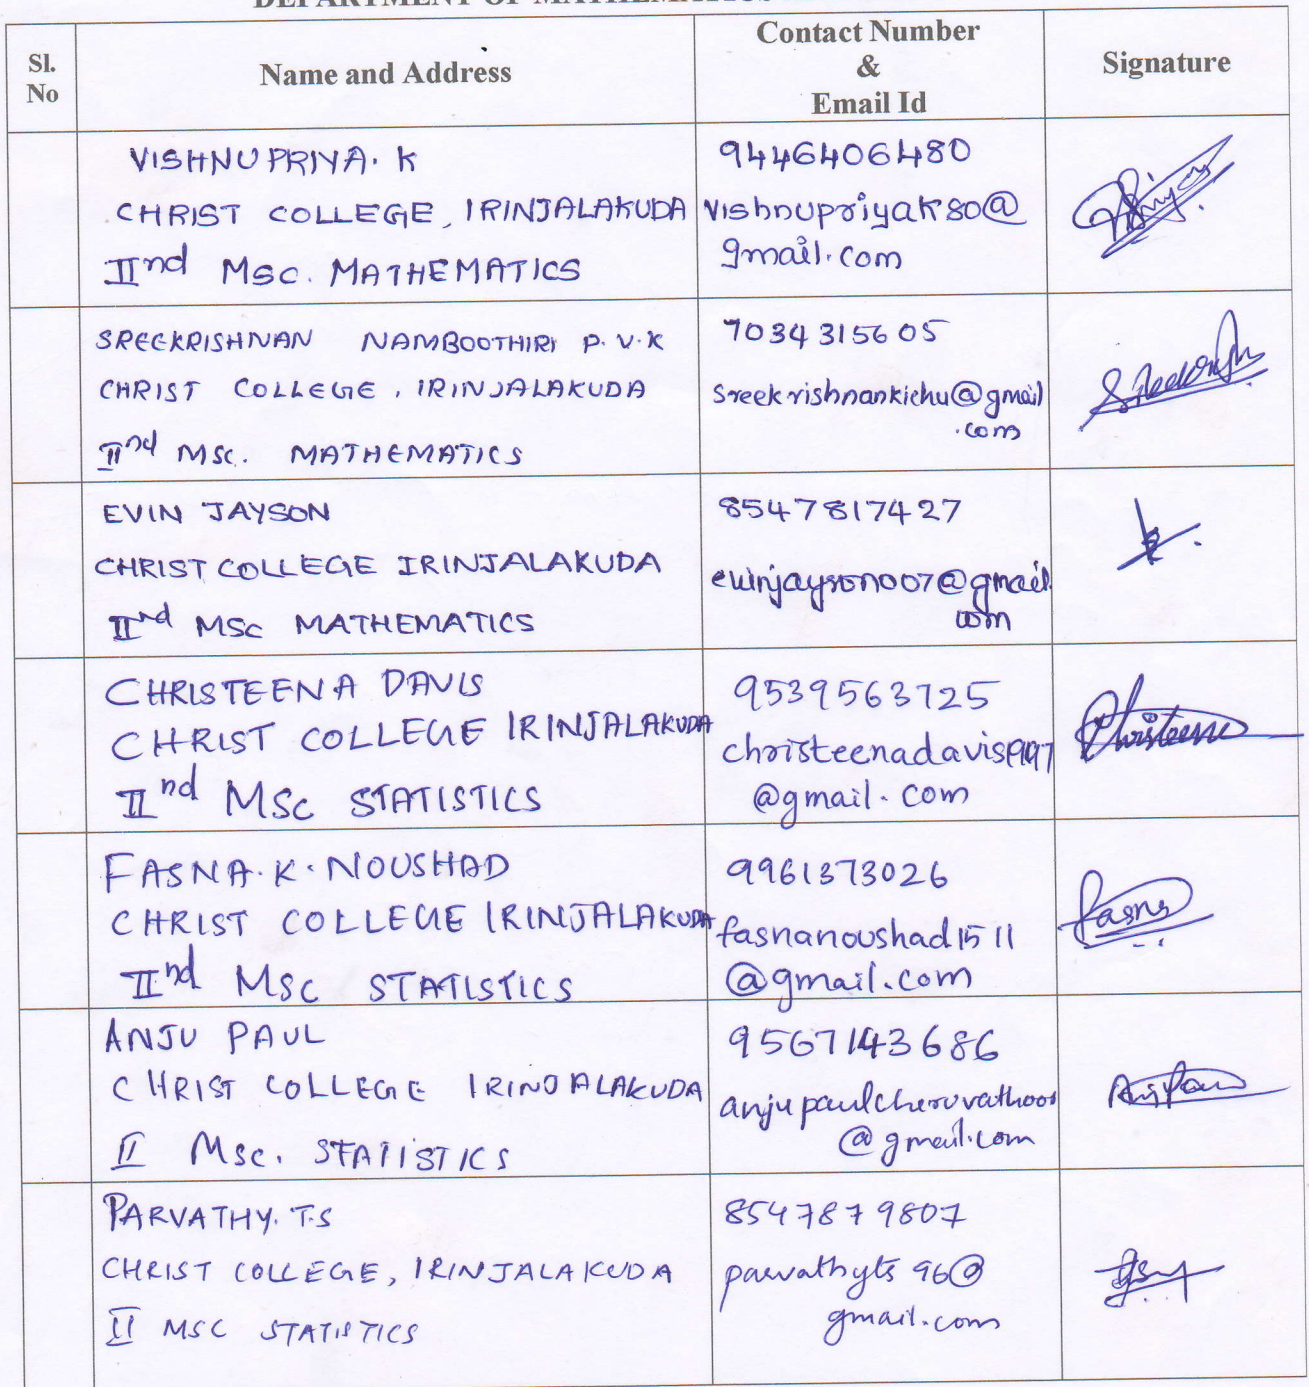 DEPARTMENT OF MATHEMATICS
Sl. No
Name and Address
Contact Number
&
Email Id
Signature
VISHNUPRIYA. K
CHRIST COLLEGE, IRINJALAKUDA
IInd MSC. MATHEMATICS
9446406480
vishnupriyak80@
gmail.com
SREEKRISHNAN NAMBOOTHIRI P.V.K
CHRIST COLLEGE, IRINJALAKUDA
IInd MSC. MATHEMATICS
7034315605
sreekrishnankichu@gmail
.com
EVIN JAYSON
CHRIST COLLEGE IRINJALAKUDA
IInd MSc MATHEMATICS
8547817427
evinjayson007@gmail.
com
CHRISTEENA DAVIS
CHRIST COLLEGE IRINJALAKUDA
IInd MSc STATISTICS
9539563725
@gmail.com
Christeena
FASNA.K.NOUSHAD
CHRIST COLLEGE IRINJALAKUDA
IInd MSc STATISTICS
9961373026
fasnanoushad1511
@gmail.com
fasna
ANJU PAUL
CHRIST COLLEGE IRINJALAKUDA
II Msc. STATISTICS
9567143686
anjupaulcheruvathoor
@gmail.com
PARVATHY.T.S
CHRIST COLLEGE, IRINJALAKUDA
II MSC STATISTICS
8547879807
parvathyts96@
gmail.com